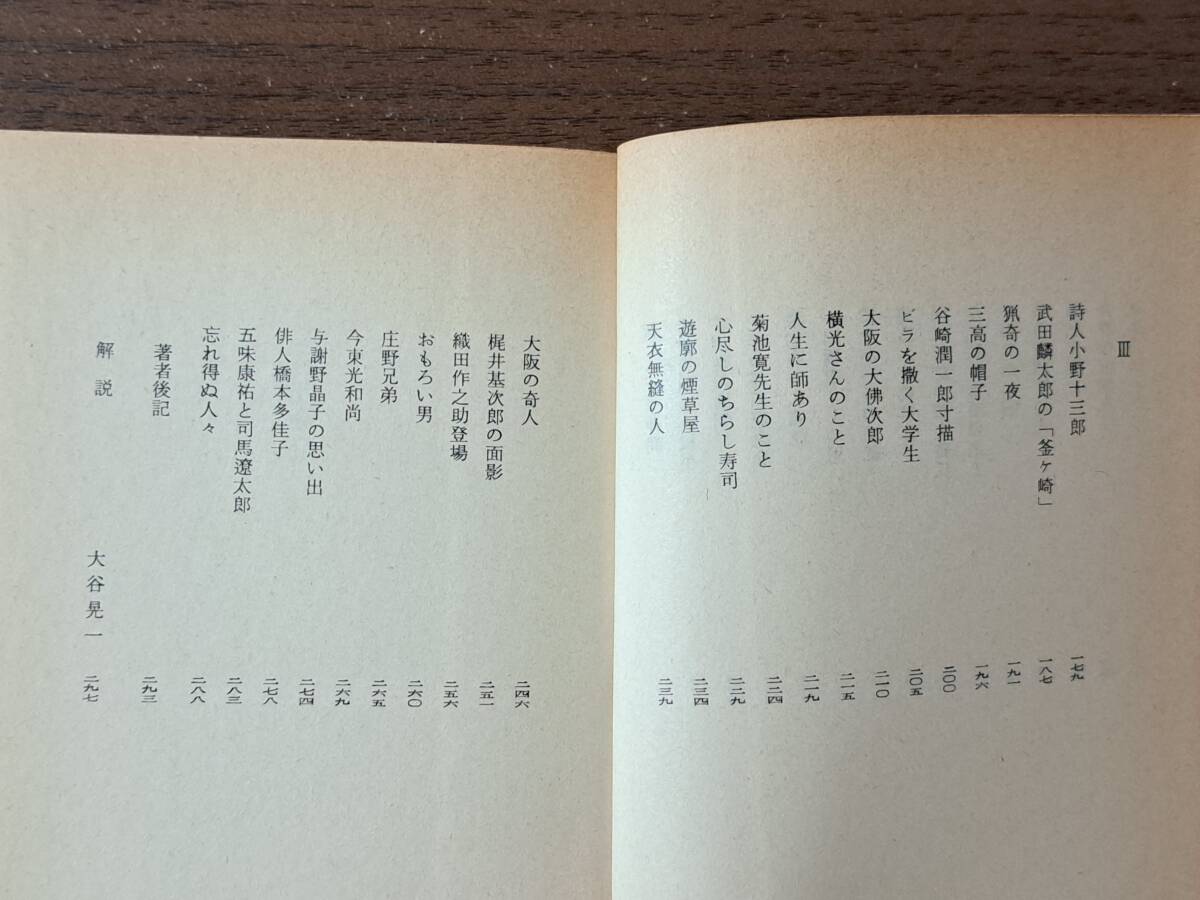 Ⅲ
詩人小野十三郎 一七九
武田麟太郎の「釜ヶ崎」 一八七
猟奇の一夜 一九一
三高の帽子 一九六
谷崎潤一郎寸描 二〇〇
ビラを撒く大学生 二〇五
大阪の大佛次郎 二一〇
横光さんのこと 二一五
人生に師あり 二一九
菊池寛先生のこと 二二四
心尽しのちらし寿司 二二九
遊廓の煙草屋 二三四
天衣無縫の人 二三九
大阪の奇人 二四六
梶井基次郎の面影 二五一
織田作之助登場 二五六
おもろい男 二六〇
庄野兄弟 二六五
今東光和尚 二六九
与謝野晶子の思い出 二七四
俳人橋本多佳子 二七八
五味康祐と司馬遼太郎 二八三
忘れ得ぬ人々 二八八
著者後記 二九三
解説 大谷晃一 二九七